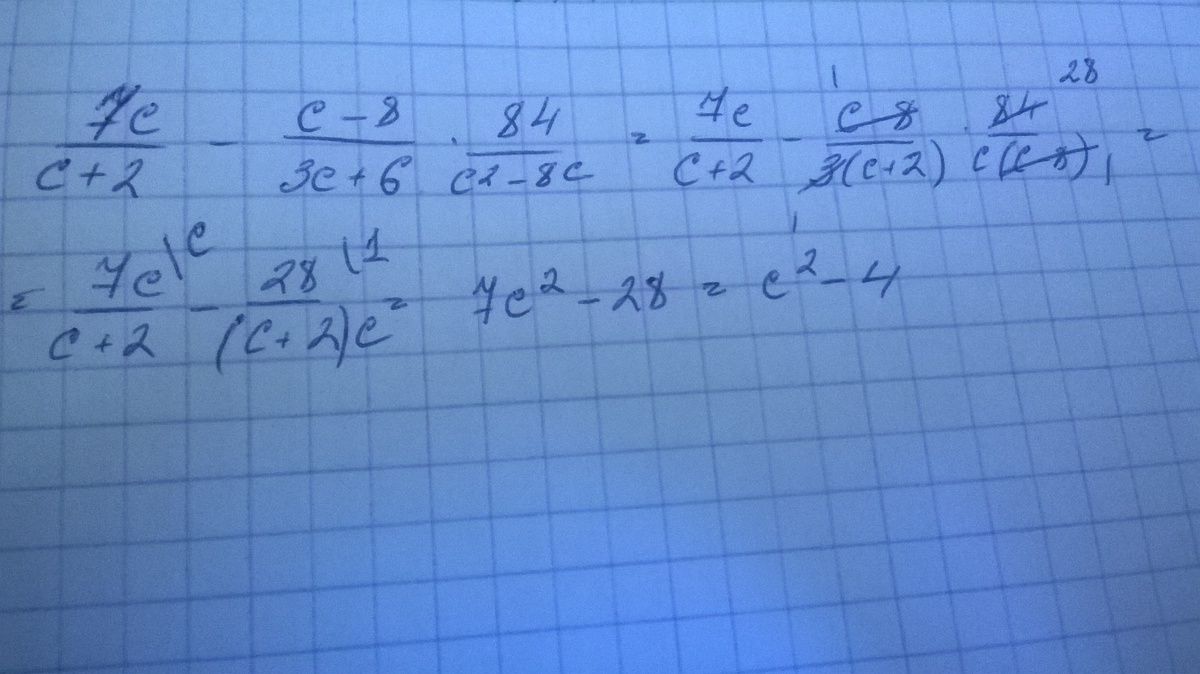 7c/(c+2) - (c-8)/(3c+6) · 84/(c²-8c) = 7c/(c+2) - (c-8)/(3(c+2)) 1 · 84/(c(c-8)) 28 1 =
= 7c/(c+2) \c - 28/((c+2)c) \1 = 7c² - 28 = c² - 4